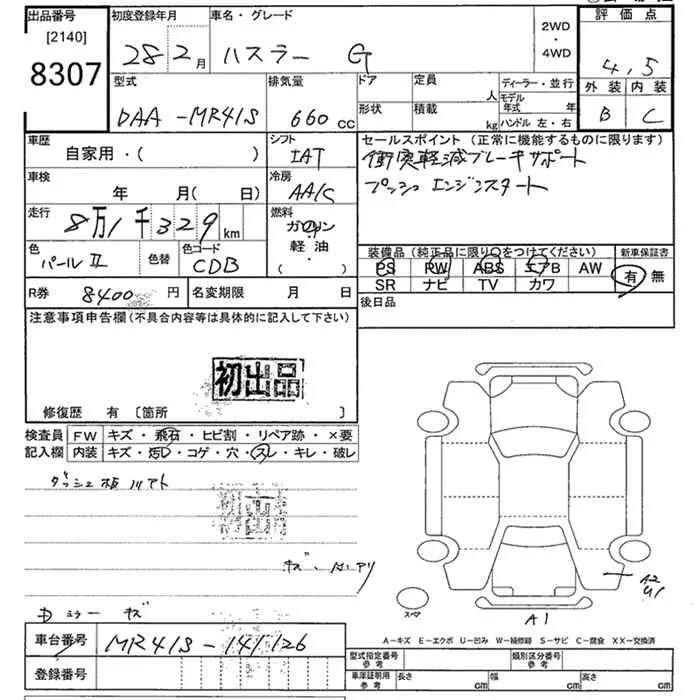 出品番号 初度登録年月 車名・グレード 2WD・4WD 評価点
[2140]
8307
28 2月 ハスラー G 4.5
型式 排気量 ドア 定員 人 ディーラー・並行 外装 内装
DAA-MR41S 660cc 形状 積載 kg モデル年式 年 B C
ハンドル 左・右
車歴 シフト セールスポイント (正常に機能するものに限ります)
自家用・( ) IAT 衝突軽減ブレーキサポート
車検 冷房 プッシュエンジンスタート
年 月( 日) AA/C
走行 燃料
8万1千329km ガソリン・軽油・( )
色 色替 色コード 装備品 (純正品に限り○をつけてください) 新車保証書
パールⅡ CDB PS PW ABS エアB AW 有 無
SR ナビ TV カワ
R券 8400円 名変期限 月 日 後日品
注意事項申告欄 (不具合内容等は具体的に記入して下さい)
初出品
修復歴 有 〔箇所 〕
検査員 FW キズ・飛石・ヒビ割・リペア跡・×要
記入欄 内装 キズ・汚レ・コゲ・穴・スレ・キレ・破レ
A2
U1
スペア
A1
ミラー キズ
A-キズ E-エクボ U-凹み W-補修跡 S-サビ C-腐食 XX-交換済
車台番号 MR41S-141126
型式指定番号 参考 類別区分番号 参考
登録番号 車庫証明用 参考 長さ cm 幅 cm 高さ cm